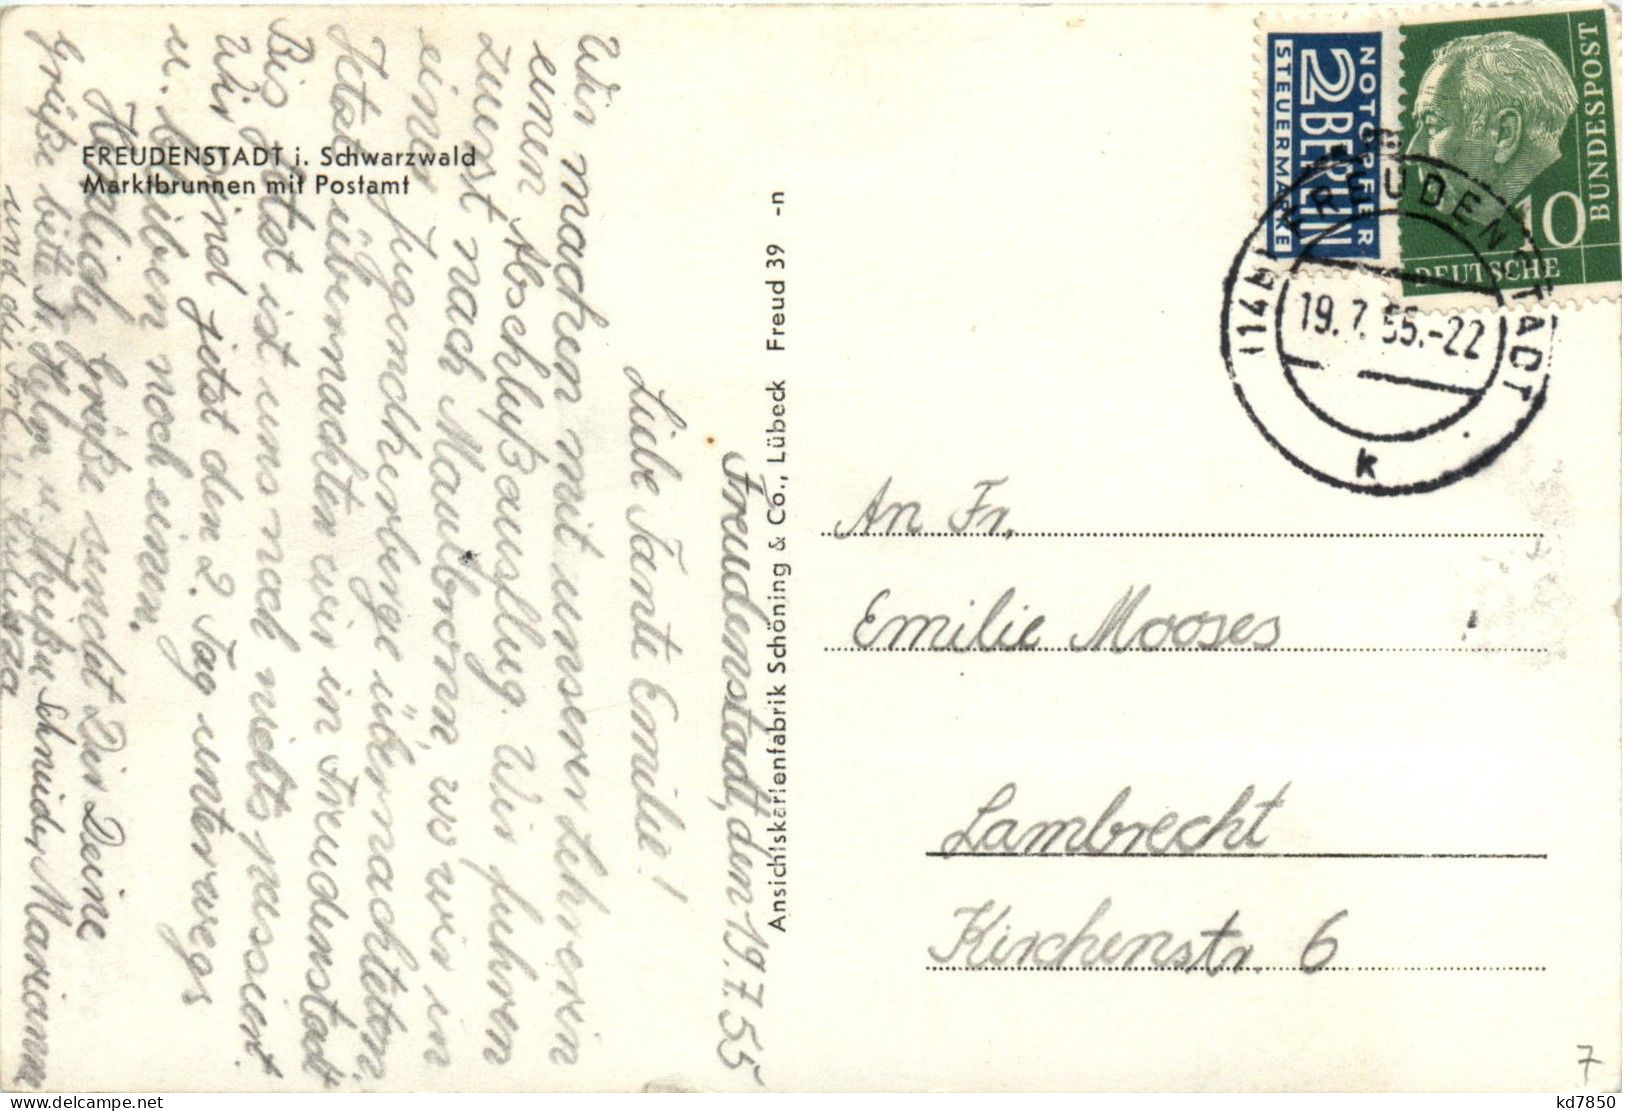 FREUDENSTADT i. Schwarzwald
Marktbrunnen mit Postamt
Freudenstadt, den 19.7.55
Liebe Tante Emilie!
Wir machen mit unserer Lehrerin
einen Abschlußausflug. Wir fuhren
zuerst nach Maulbronn, wo wir in
einer Jugendherberge übernachteten
Jetzt übernachten wir in Freudenstadt
Bis jetzt ist uns noch nichts passiert
Wir sind jetzt den 2. Tag unterwegs
u. bleiben noch einen.
Herzliche Grüße sendet Dir Deine
Marianne
Grüße bitte Fr. Helm u. Schmidt,
und die Frl. u.
Ansichtskartenfabrik Schöning & Co., Lübeck Freud 39 -n
NOTOPFER
2 BERLIN
STEUERMARKE
DEUTSCHE
BUNDESPOST
10
(14b) FREUDENSTADT
19.7.55.-22
k
An Fr.
Emilie Mooses
Lambrecht
Kirchenstr. 6
7
www.delcampe.net
kd7850